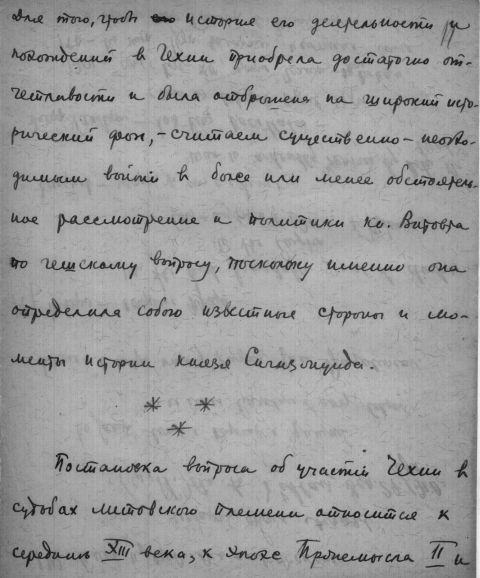 Для того, чтобы история его деятельности и
похождений в Чехии приобрела достаточно от-
четливости и была отброшена на широкий исто-
рический фон, – считаем существенно – необхо-
димым войти в более или менее обстоятель-
ное рассмотрение и политики кн. Витовта
по чешскому вопросу, поскольку именно она
определила собою известные стороны и мо-
менты истории князя Сигизмунда.
* *
*
Постановка вопроса об участии Чехии в
судьбах литовского племени относится к
середине XIII века, к эпохе Пржемысла II и